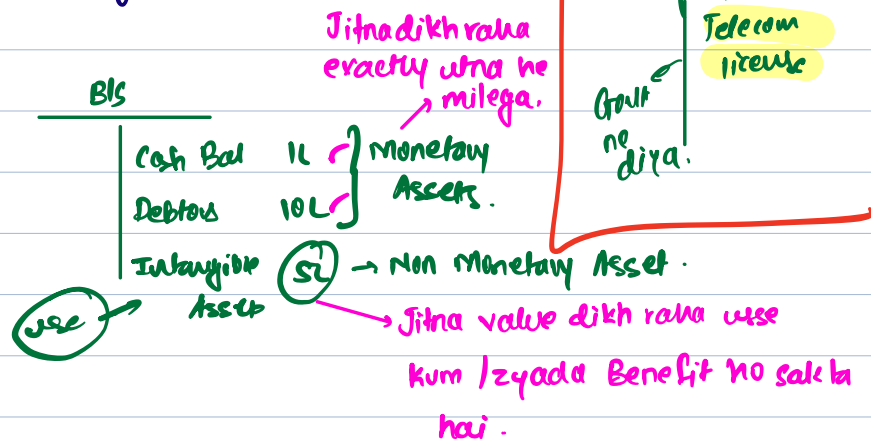 Jitna dikh raha
exactly utna he
milega.
Telecom
license
Govt
ne
diya.
B/s
Cash Bal 1L
Debtors 10L
Monetary
Assets.
Intangible
Assets
5L → Non Monetary Asset.
use
Jitna value dikh raha usse
kum / zyada Benefit ho sakta
hai.